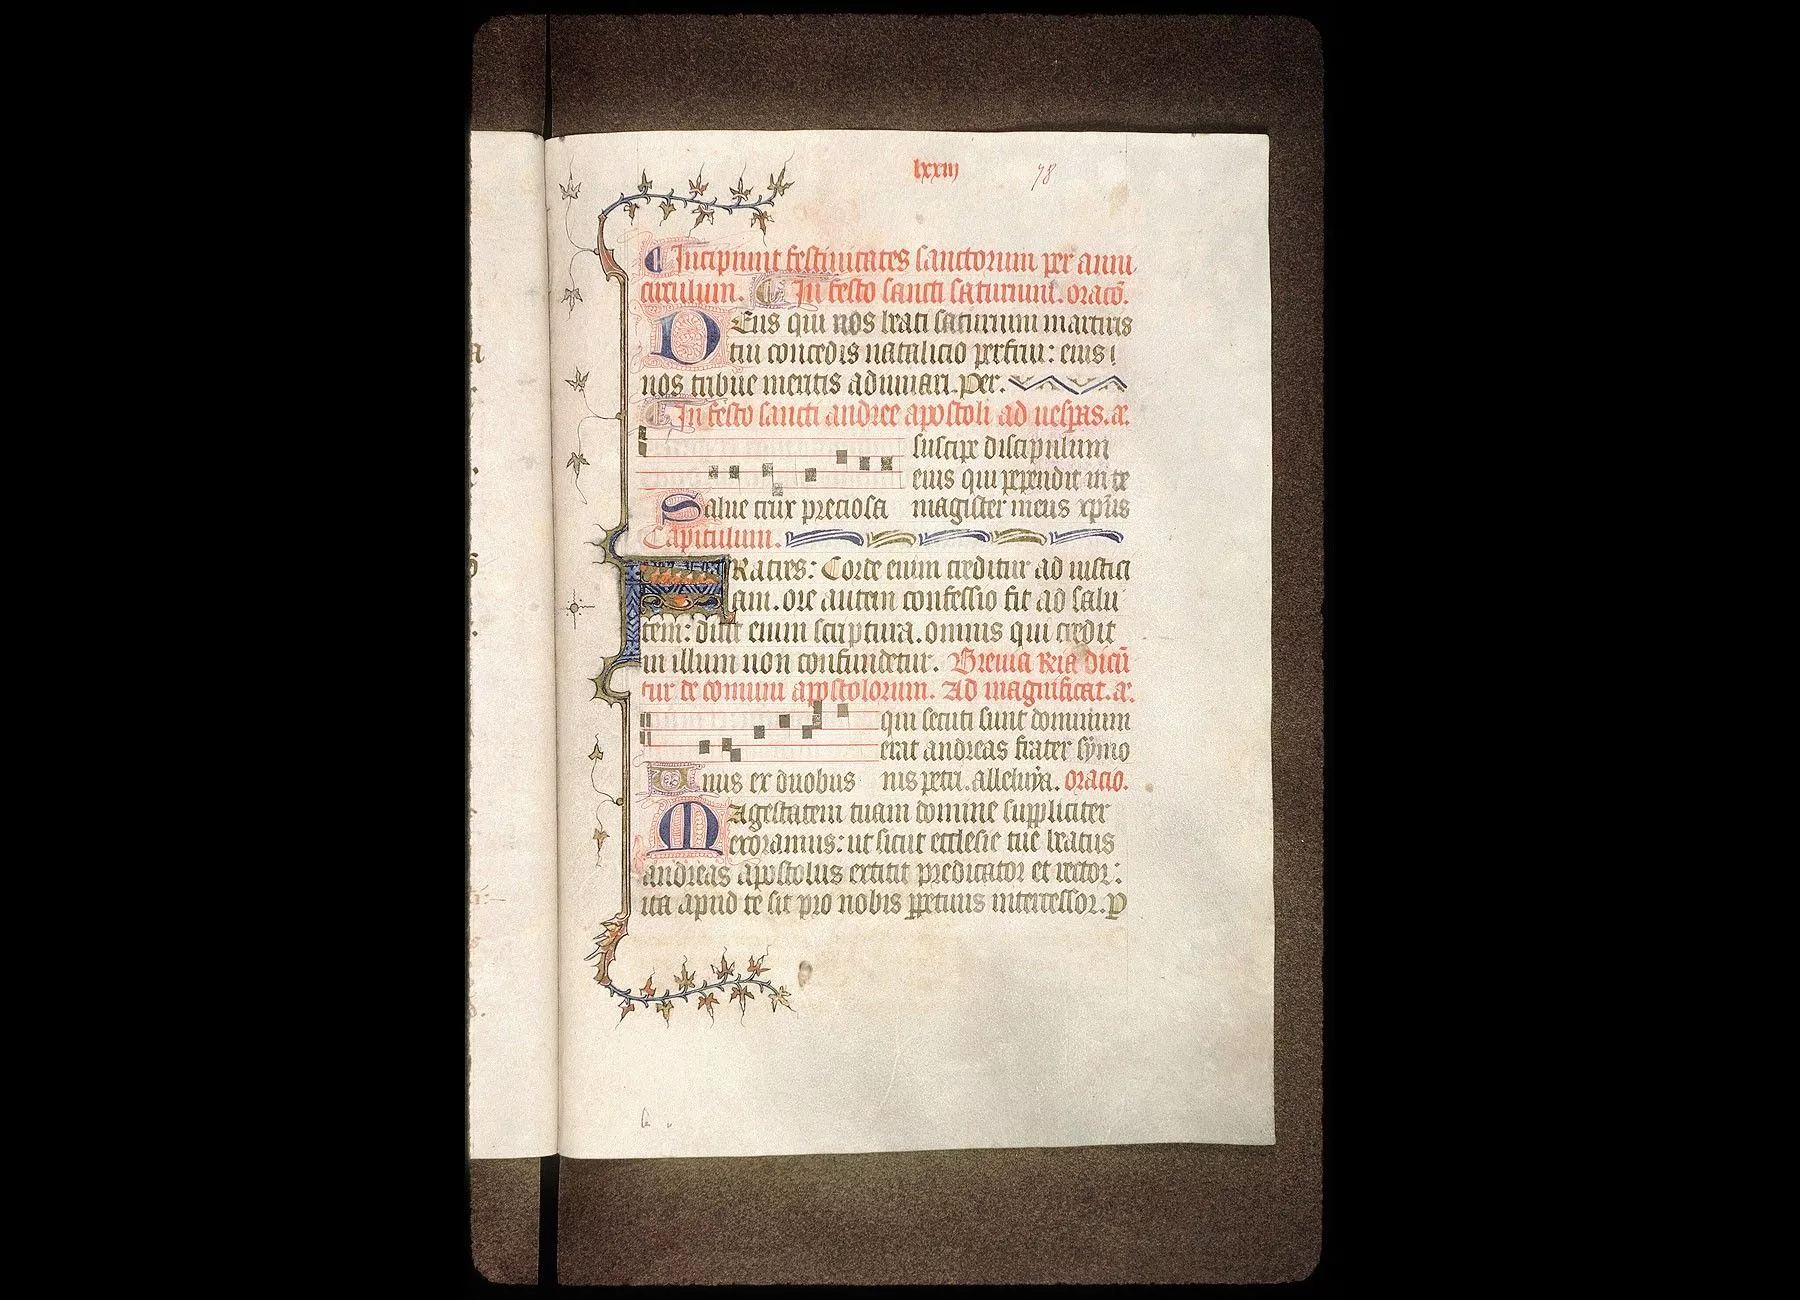 lxxiij 78
Incipiunt festiuitates sanctorum per anni
circulum. In festo sancti saturnini. oracō.
DEus qui nos beati saturnini martiris
tui concedis natalicio perfrui: eius i
nos tribue meritis adiuuari. per.
In festo sancti andree apostoli ad uesp̄as. a͞.
suscipe discipulum
eius qui pependit in te
Salue crux preciosa magister meus xp̄us
Capitulum.
FRatres: Corde enim creditur ad iustici
am. ore autem confessio fit ad salu
tem: dicit enim scriptura. omnis qui credit
in illum non confundetur. Breuia R̄ia dicū
tur de comuni apostolorum. Ad magnificat. a͞.
qui secuti sunt dominum
erat andreas frater symo
Unus ex duobus nis petri. alleluya. oracio.
Magestatem tuam domine suppliciter
exoramus: ut sicut ecclesie tue beatus
andreas apostolus extitit predicator et rector:
ita apud te sit pro nobis ꝑpetuus intercessor. ꝑ